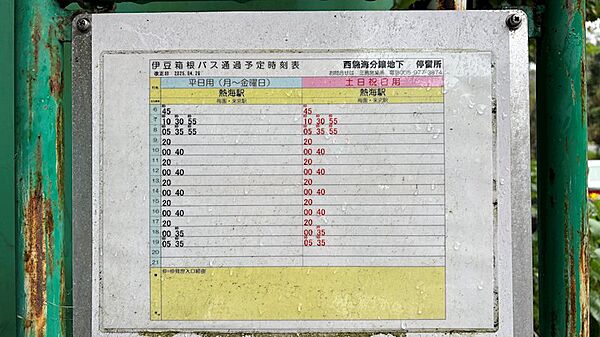 伊豆箱根バス通過予定時刻表
西熱海分譲地下 停留所
改正日
平日用(月～金曜日) 土日祝日用
熱海駅 熱海駅
梅園・来宮駅 梅園・来宮駅
6 45 45
7 10 30 55 10 30 55
8 05 35 55 05 35 55
9 20 20
10 00 40 00 40
11 20 20
12 00 40 00 40
13 20 20
14 00 40 00 40
15 20 20
16 00 40 00 40
17 20 20
18 00 35 00 35
19 05 35 05 35
20
21